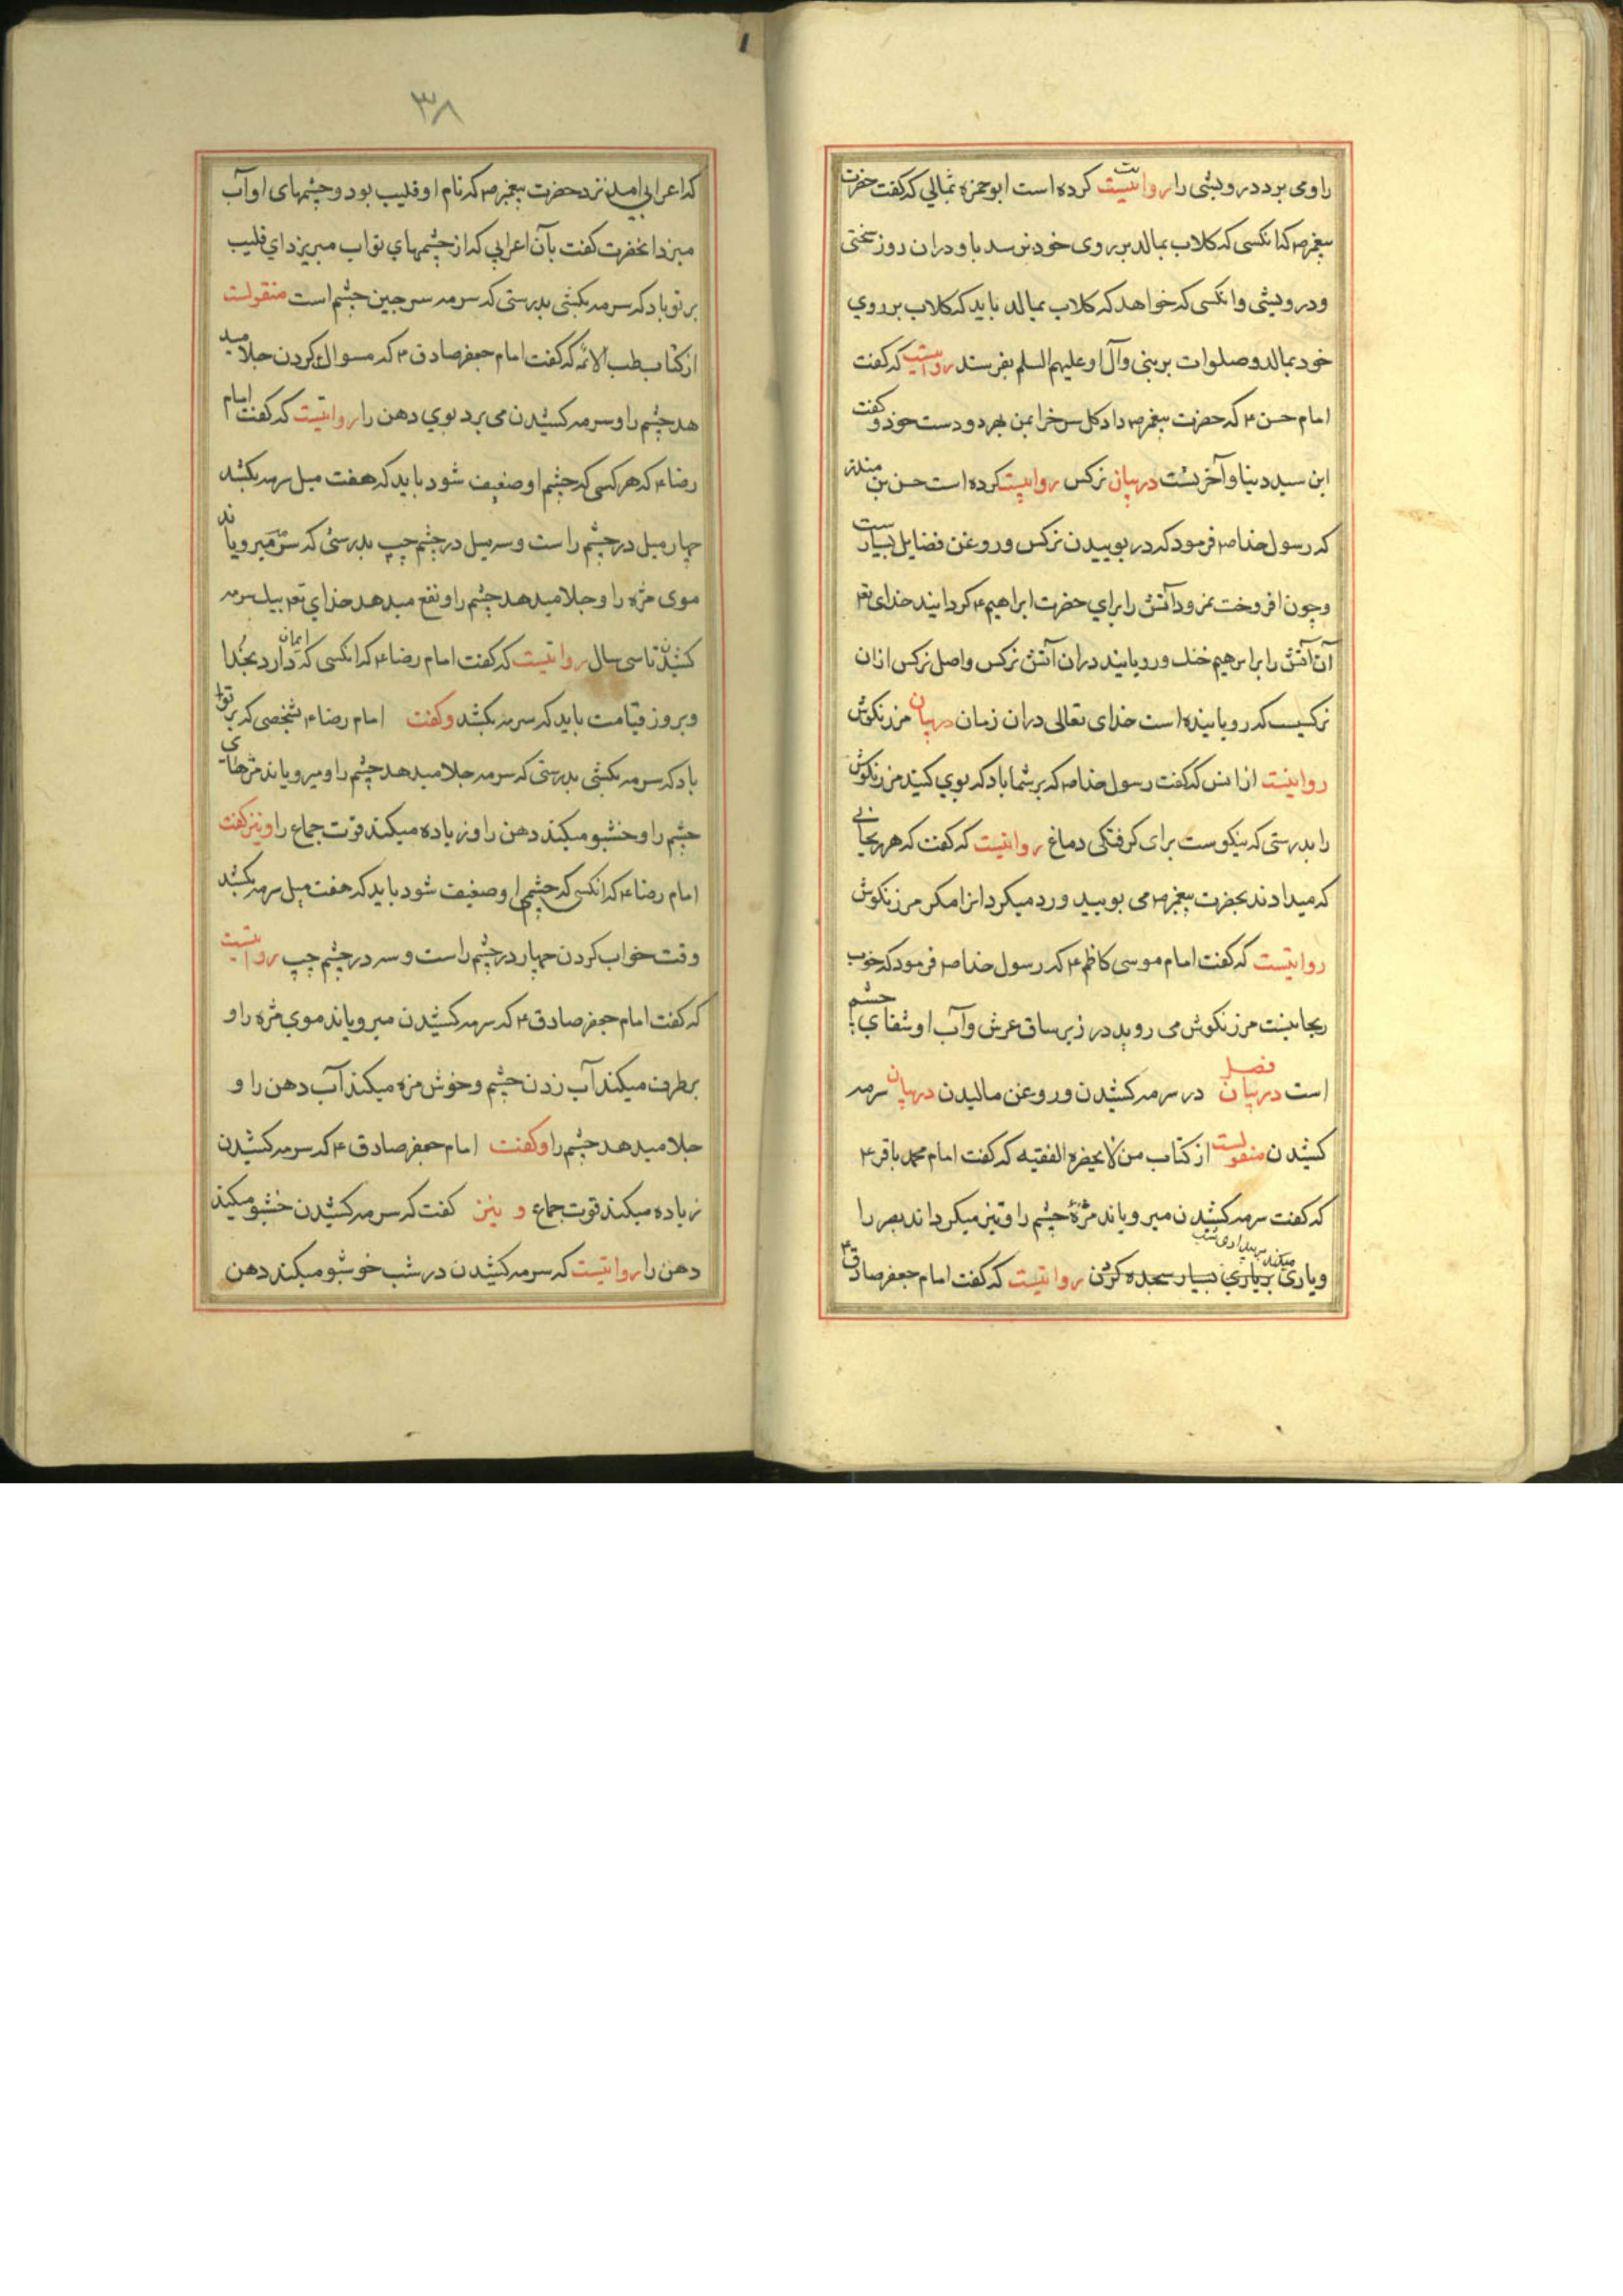 را و می برد درویشی را روایتست کرده است ابو حمزه ثمالی که گفت حضرت
پیغمبر ص که انکسی که کلاب بمالد بر روی خود نرسد باو دران روز سختی
و درویشی و انکسی که خواهد که کلاب بمالد باید که کلاب بر روی
خود بمالد و صلوات بر بنی و آل او علیهم السلم بفرستد روایتست که گفت
امام حسن ۴ که حضرت پیغمبر ص داد کل سرخ را بمن بهر دو دست خود و گفت
این سید دنیا و آخرتست در بیان نرکس روایتست کرده است حسن بن منذر
که رسول خدا ص فرمود که در بوییدن نرکس و روغن فضایل بسیارست
و چون افروخت نمرود آتش را برای حضرت ابراهیم ۴ کردانید خدای تع
آن آتش را بر ابرهیم خنک و رویانید دران آتش نرکس و اصل نرکس ازان
نرکسیست که رویانیده است خدای تعالی دران زمان در بیان مرزنکوش
روایتست از انس که گفت رسول خدا ص که بر شما باد که بوی کنید مرزنکوش
را بدرستی که نیکوست برای کرفتکی دماغ روایتست که گفت که هر ریحانی
که میدادند بحضرت پیغمبر ص می بویید و رد میکرد انرا مکر مرزنکوش
روایتست که گفت امام موسی کاظم ۴ که رسول خدا ص فرمود که خوب
ریحانیست مرزنکوش می روید در زیر ساق عرش و آب او شفای چشم
است فصل در بیان در سرمه کشیدن و روغن مالیدن در بیان سرمه
کشیدن منقولست از کتاب من لا یحضره الفقیه که گفت امام محمد باقر ۴
که گفت سرمه کشیدن میرویاند مژهٔ چشم را و تیز میکرداند بصر را
و یاری میکند بر بیداری شب بریاری بسیار سجده کردن روایتست که گفت امام جعفر صادق ۴
۳۸
که اعرابی امد نزد حضرت پیغمبر ص که نام او قلیب بود و چشمهای او آب
میزد انحضرت گفت بآن اعرابی که از چشمهای تو اب میریزد ای قلیب
بر تو باد که سرمه بکشی بدرستی که سرمه سرجین چشم است منقولست
از کتاب طب الائمه که گفت امام جعفر صادق ۴ که مسواک کردن جلا مید
هد چشم را و سرمه کشیدن می برد بوی دهن را روایتست که گفت امام
رضا ۴ که هر کسی که چشم او ضعیف شود باید که هفت میل سرمه بکشد
چهار میل در چشم راست و سه میل در چشم چپ بدرستی که سرمه میرویاند
موی مژه را و جلا میدهد چشم را و نفع میدهد خدای تع بیک سرمه
کشیدن تا سی سال روایتست که گفت امام رضا ۴ که انکسی که ایمان دارد بخدا
و بروز قیامت باید که سرمه بکشد و گفت امام رضا ۴ بشخصی که بر تو
باد که سرمه بکشی بدرستی که سرمه جلا میدهد چشم را و میرویاند مژهای
چشم را و خشبو میکند دهن را و زیاده میکند قوت جماع را و نیز گفت
امام رضا ۴ که انکسی که چشم او ضعیف شود باید که هفت میل سرمه بکشد
وقت خواب کردن چهار در چشم راست و سه در چشم چپ روایتست
که گفت امام جعفر صادق ۴ که سرمه کشیدن میرویاند موی مژه را و
برطرف میکند آب زدن چشم و خوش مزه میکند آب دهن را و
جلا میدهد چشم را و گفت امام جعفر صادق ۴ که سرمه کشیدن
زیاده میکند قوت جماع و نیز گفت که سرمه کشیدن خشبو میکند
دهن را روایتست که سرمه کشیدن در شب خوشبو میکند دهن